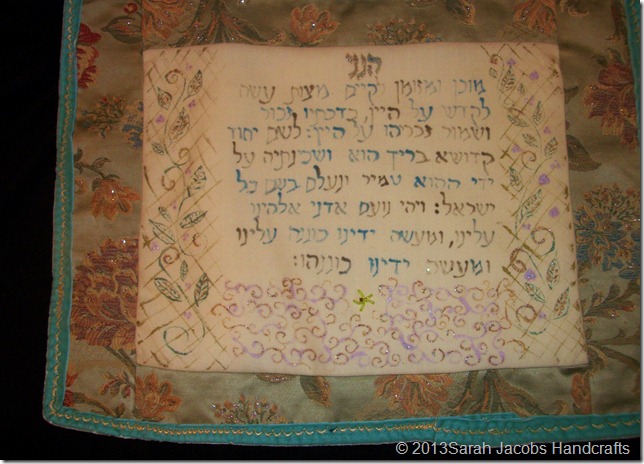 הנני
מוכן ומזומן לקיים מצות עשה
לקדש על היין, כדכתיב זכור
ושמור זכריהו על היין: לשם יחוד
קדושא בריך הוא ושכינתיה על
ידי ההוא טמיר ונעלם בשם כל
ישראל: ויהי נועם אדני אלהינו
עלינו, ומעשה ידינו כוננה עלינו
ומעשה ידינו כוננהו:
© 2013Sarah Jacobs Handcrafts